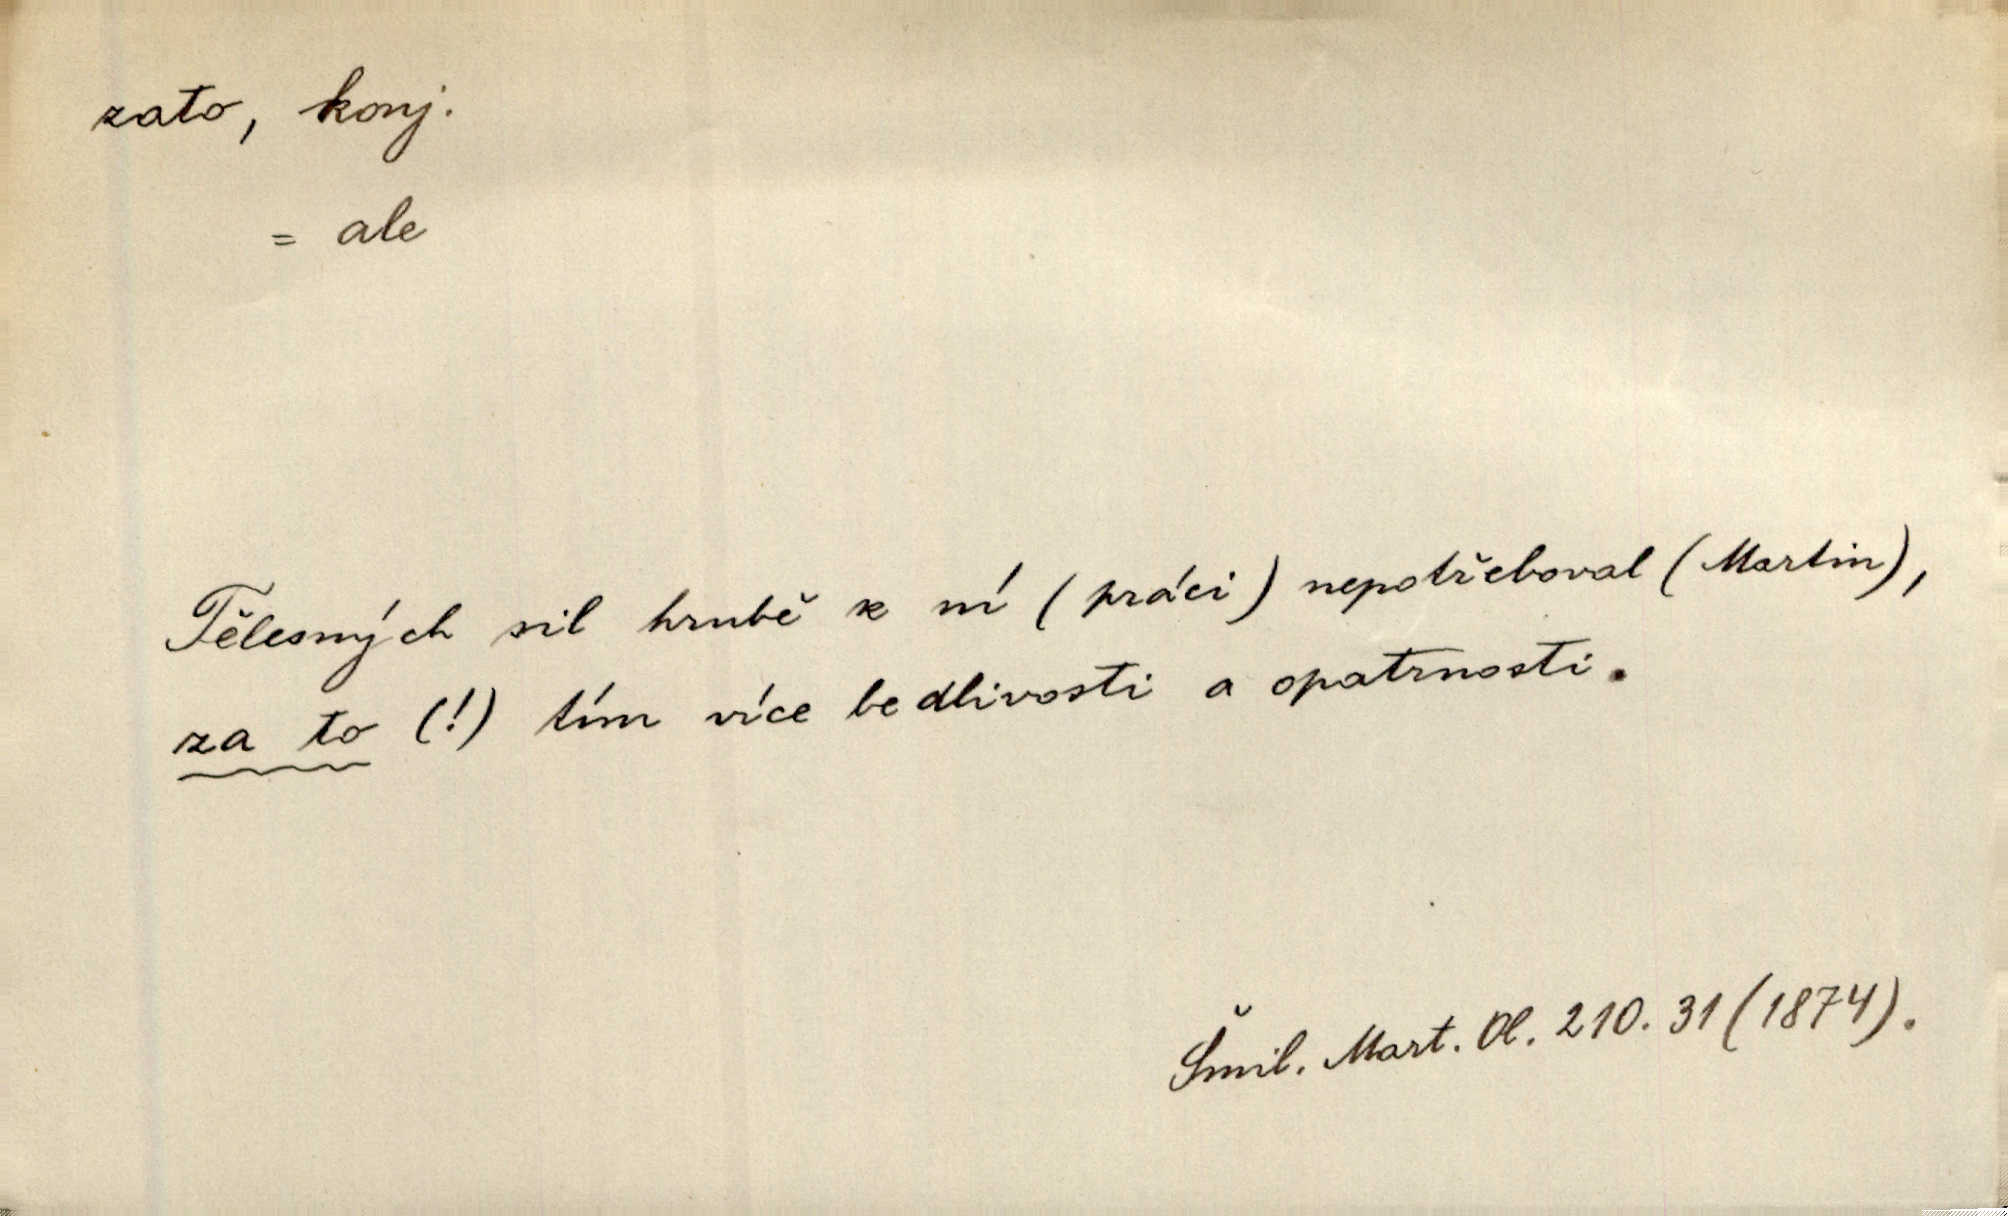 zato, konj.
= ale
Tělesných sil hrubě k ní (práci) nepotřeboval (Martin),
za to (!) tím více bedlivosti a opatrnosti.
Šmil. Mart. Ol. 210. 31 (1874).